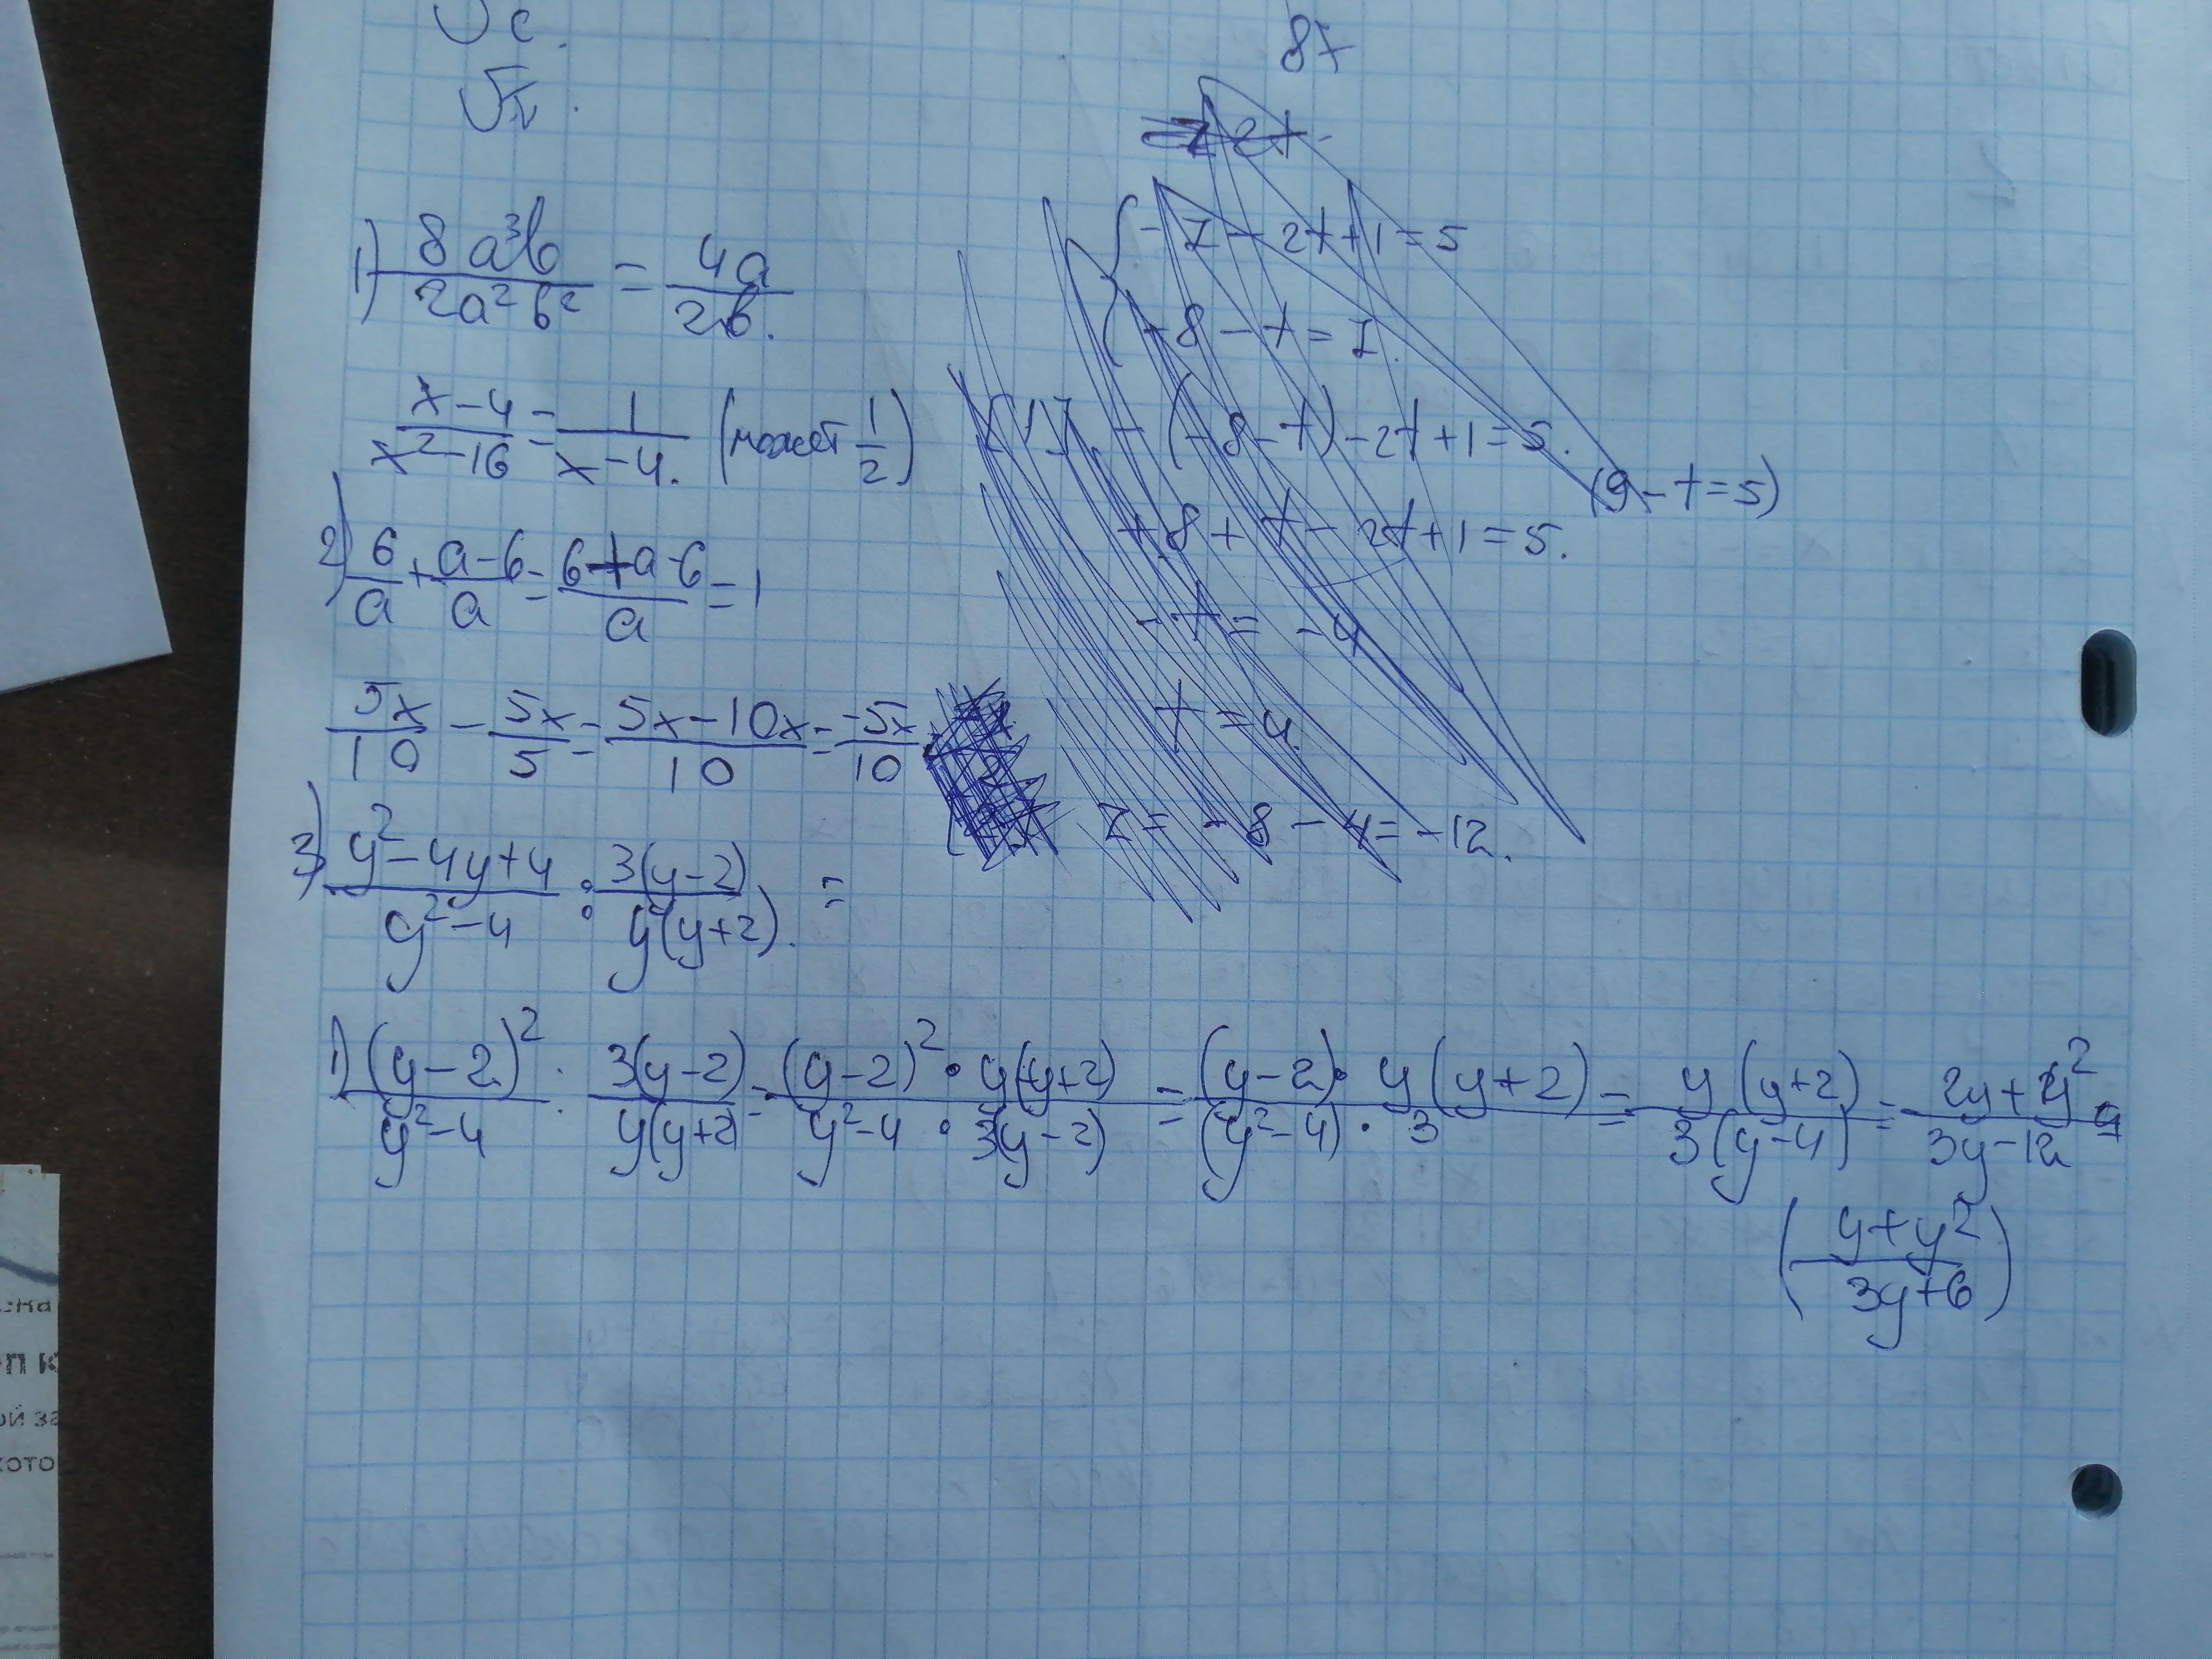 √c.
√π.
87
1) 8a³b / 2a²b² = 4a / 2b.
x-4 / x²-16 = 1 / x-4. (может 1/2)
2) 6/a + a-6 / a = 6+a-6 / a = 1
5x/10 - 5x/5 = 5x-10x / 10 = -5x/10
3) y²-4y+4 / y²-4 : 3(y-2) / y(y+2). =
1) (y-2)² / y²-4 : 3(y-2) / y(y+2) = (y-2)² • y(y+2) / y²-4 • 3(y-2) = (y-2) • y(y+2) / (y²-4) • 3 = y(y+2) / 3(y-4) = 2y+y² / 3y-12 =
(y+y² / 3y+6)
-7-2t+1=5
-8-t=7.
-(-8-t)-2t+1=5.
(9-t=5)
+8+t-2t+1=5.
-t=-4
t=4.
7=-8-4=-12.
ой за
кото